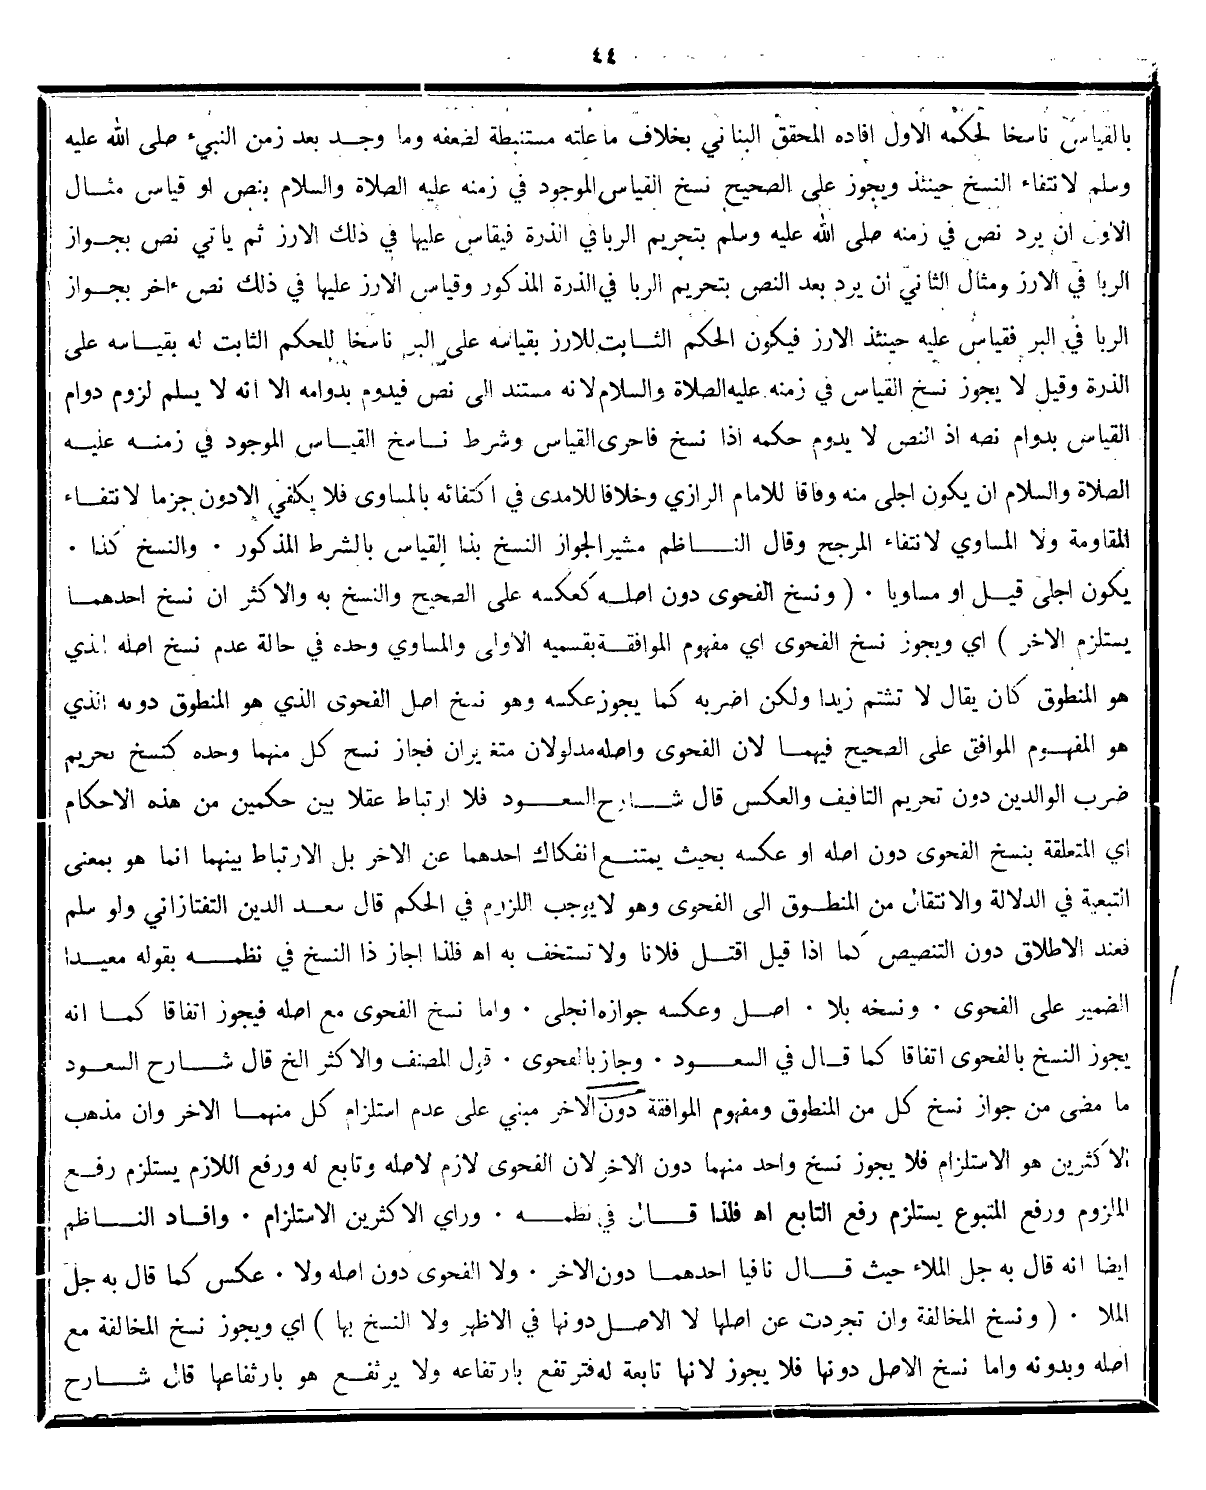 ٤٤
بالقياس ناسخا لحكمه الاول افاده المحقق البناني بخلاف ما علته مستنبطة لضعفه وما وجد بعد زمن النبيء صلى الله عليه
وسلم لانتفاء النسخ حينئذ ويجوز على الصحيح نسخ القياس الموجود في زمنه عليه الصلاة والسلام بنص او قياس مثال
الاول ان يرد نص في زمنه صلى الله عليه وسلم بتحريم الربا في الذرة فيقاس عليها في ذلك الارز ثم ياتي نص بجواز
الربا في الارز ومثال الثاني ان يرد بعد النص بتحريم الربا في الذرة المذكور وقياس الارز عليها في ذلك نص ءاخر بجواز
الربا في البر فقياس عليه حينئذ الارز فيكون الحكم الثابت للارز بقياسه على البر ناسخا للحكم الثابت له بقياسه على
الذرة وقيل لا يجوز نسخ القياس في زمنه عليه الصلاة والسلام لانه مستند الى نص فيدوم بدوامه الا انه لا يسلم لزوم دوام
القياس بدوام نصه اذ النص لا يدوم حكمه اذا نسخ فاحرى القياس وشرط ناسخ القياس الموجود في زمنه عليه
الصلاة والسلام ان يكون اجلى منه وفاقا للامام الرازي وخلافا للامدى في اكتفائه بالمساوى فلا يكفي الادون جزما لانتفاء
المقاومة ولا المساوي لانتفاء المرجح وقال الناظم مشير الجواز النسخ بذا القياس بالشرط المذكور ٠ والنسخ كذا ٠
يكون اجلى قيل او مساويا ٠ ( ونسخ الفحوى دون اصله كعكسه على الصحيح والنسخ به والاكثر ان نسخ احدهما
يستلزم الاخر ) اي ويجوز نسخ الفحوى اي مفهوم الموافقة بقسميه الاولى والمساوي وحده في حالة عدم نسخ اصله الذي
هو المنطوق كان يقال لا تشتم زيدا ولكن اضربه كما يجوز عكسه وهو نسخ اصل الفحوى الذي هو المنطوق دونه الذي
هو المفهوم الموافق على الصحيح فيهما لان الفحوى واصله مدلولان متغيران فجاز نسخ كل منهما وحده كنسخ تحريم
ضرب الوالدين دون تحريم التافيف والعكس قال شارح السعود فلا ارتباط عقلا بين حكمين من هذه الاحكام
اي المتعلقة بنسخ الفحوى دون اصله او عكسه بحيث يمتنع انفكاك احدهما عن الاخر بل الارتباط بينهما انما هو بمعنى
التبعية في الدلالة والانتقال من المنطوق الى الفحوى وهو لا يوجب اللزوم في الحكم قال سعد الدين التفتازاني ولو سلم
فعند الاطلاق دون التنصيص كما اذا قيل اقتل فلانا ولا تستخف به اه فلذا اجاز ذا النسخ في نظمه بقوله معيدا
الضمير على الفحوى ٠ ونسخه بلا ٠ اصل وعكسه جوازه انجلى ٠ واما نسخ الفحوى مع اصله فيجوز اتفاقا كما انه
يجوز النسخ بالفحوى اتفاقا كما قال في السعود ٠ وجاز بالفحوى ٠ قول المصنف والاكثر الخ قال شارح السعود
ما مضى من جواز نسخ كل من المنطوق ومفهوم الموافقة دون الاخر مبني على عدم استلزام كل منهما الاخر وان مذهب
الاكثرين هو الاستلزام فلا يجوز نسخ واحد منهما دون الاخر لان الفحوى لازم لاصله وتابع له ورفع اللازم يستلزم رفع
الملزوم ورفع المتبوع يستلزم رفع التابع اه فلذا قال في نظمه ٠ وراي الاكثرين الاستلزام ٠ وافاد الناظم
ايضا انه قال به جل الملاء حيث قال نافيا احدهما دون الاخر ٠ ولا الفحوى دون اصله ولا ٠ عكس كما قال به جل
الملا ٠ ( ونسخ المخالفة وان تجردت عن اصلها لا الاصل دونها في الاظهر ولا النسخ بها ) اي ويجوز نسخ المخالفة مع
اصله وبدونه واما نسخ الاصل دونها فلا يجوز لانها تابعة له فترتفع بارتفاعه ولا يرتفع هو بارتفاعها قال شارح